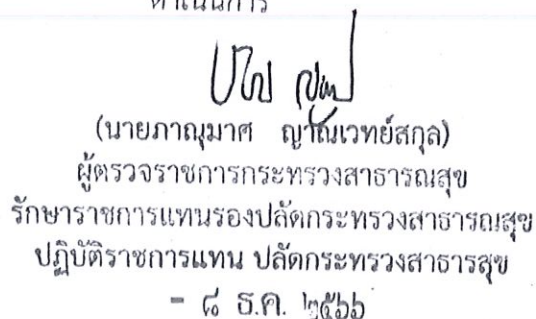 ดำเนินการ
(นายภาณุมาศ ญาณเวทย์สกุล)
ผู้ตรวจราชการกระทรวงสาธารณสุข
รักษาราชการแทนรองปลัดกระทรวงสาธารณสุข
ปฏิบัติราชการแทน ปลัดกระทรวงสาธารสุข
- ๘ ธ.ค. ๒๕๖๖